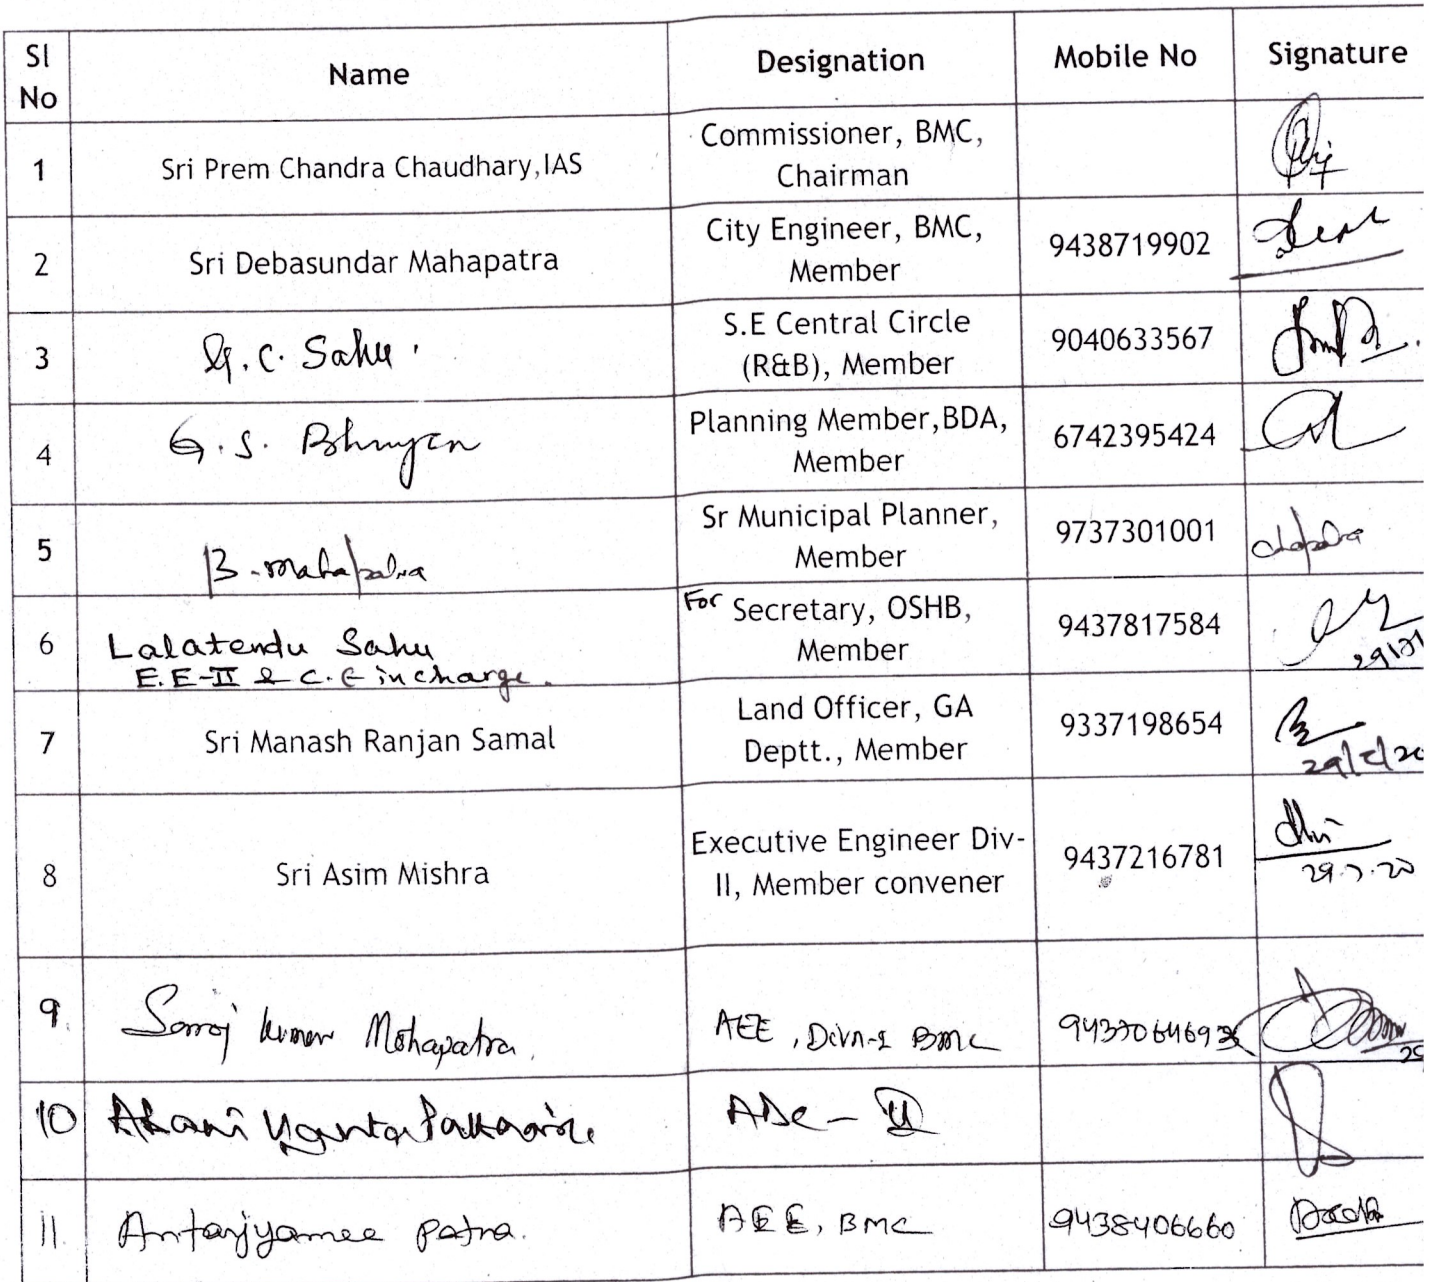 Sl No Name Designation Mobile No Signature
1 Sri Prem Chandra Chaudhary,IAS Commissioner, BMC, Chairman
2 Sri Debasundar Mahapatra City Engineer, BMC, Member 9438719902
3 G.C. Sahu. S.E Central Circle (R&B), Member 9040633567
4 G.S. Bhuyan Planning Member,BDA, Member 6742395424
5 B. Mahapatra Sr Municipal Planner, Member 9737301001
6 Lalatendu Sahu E.E-II & C.E incharge. For Secretary, OSHB, Member 9437817584
7 Sri Manash Ranjan Samal Land Officer, GA Deptt., Member 9337198654
8 Sri Asim Mishra Executive Engineer Div-II, Member convener 9437216781 29.7.20
9. Saroj kumar Mohapatra. AEE, Divn-I BMC
10
11. Antarjyamee Patra. AEE, BMC 9438406660